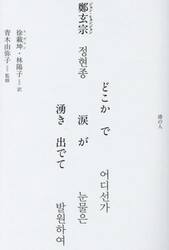 港の人
どこかで
어디선가
涙が
눈물은
湧き出でて
발원하여
鄭玄宗
정현종
徐載坤・林陽子=訳
青木由弥子=監修